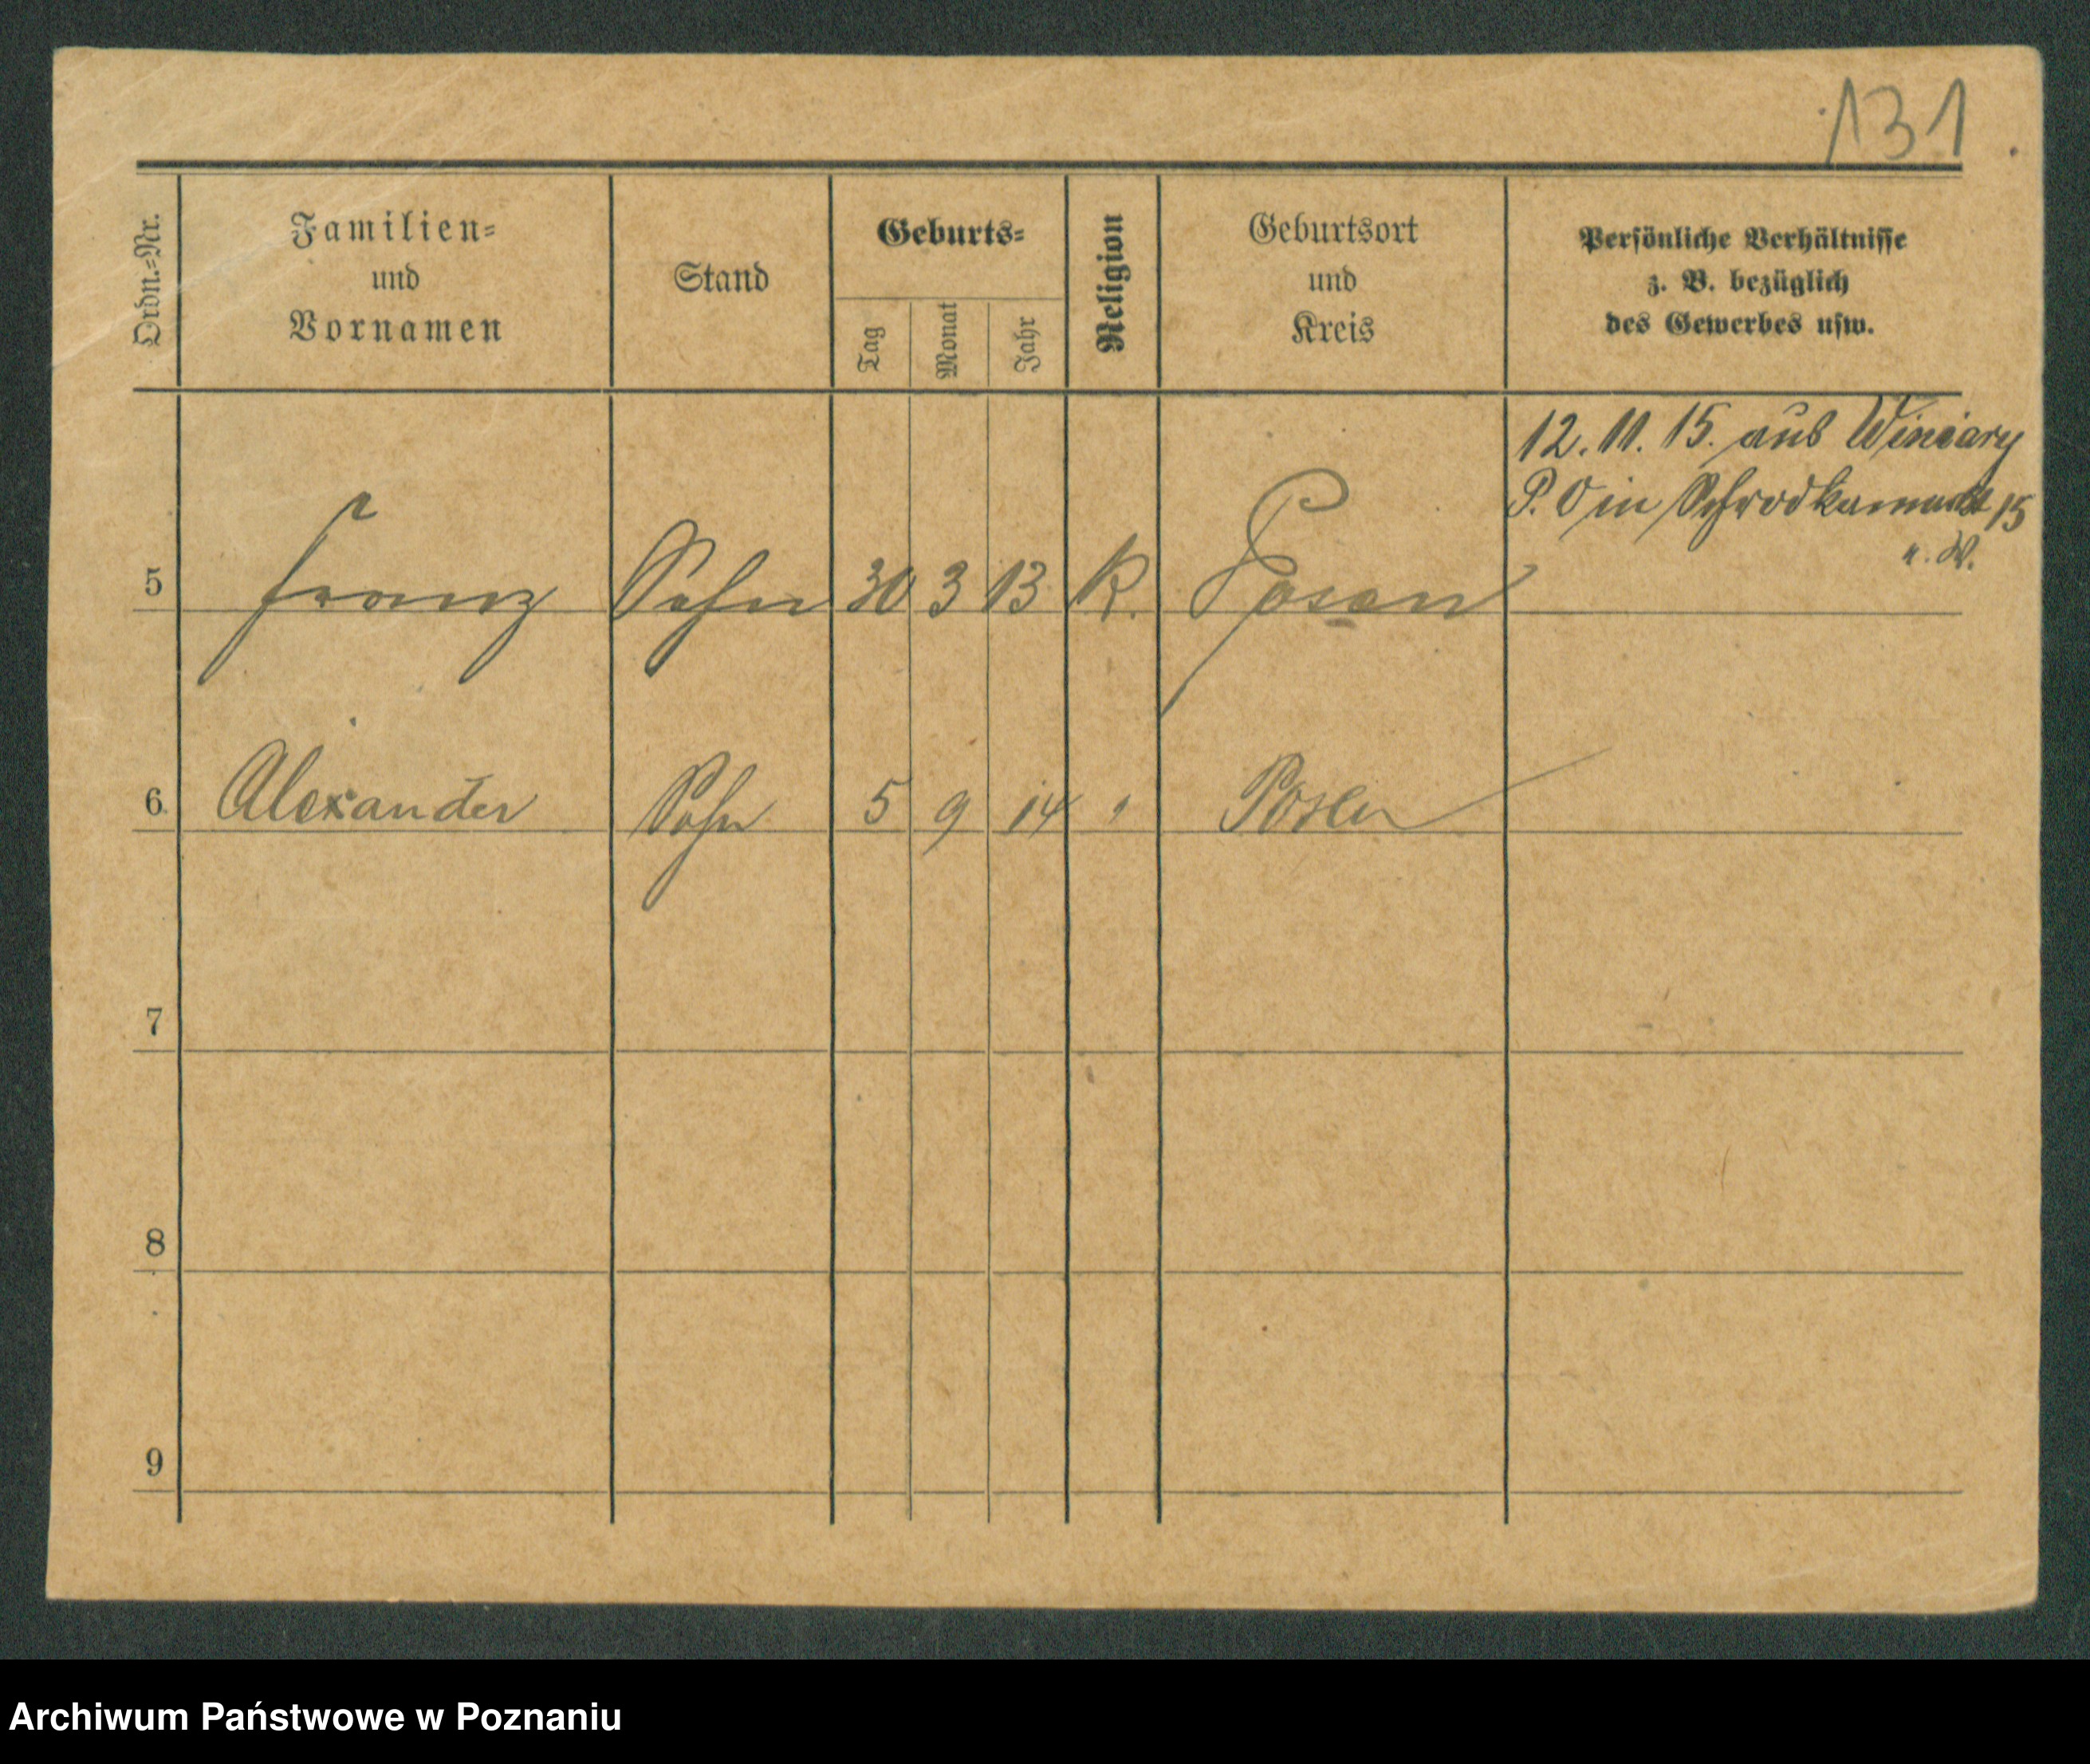 131
Ordn.=Nr.
Familien=
und
Vornamen
Stand
Geburts=
Tag
Monat
Jahr
Religion
Geburtsort
und
Kreis
Persönliche Verhältnisse
z. B. bezüglich
des Gewerbes usw.
12. 11. 15. aus Winiary
P. O in 15
5 Franz Sohn 30 3 13 K. Posen
6 Alexander Sohn 5 9 14 " Posen
7
8
9
Archiwum Państwowe w Poznaniu